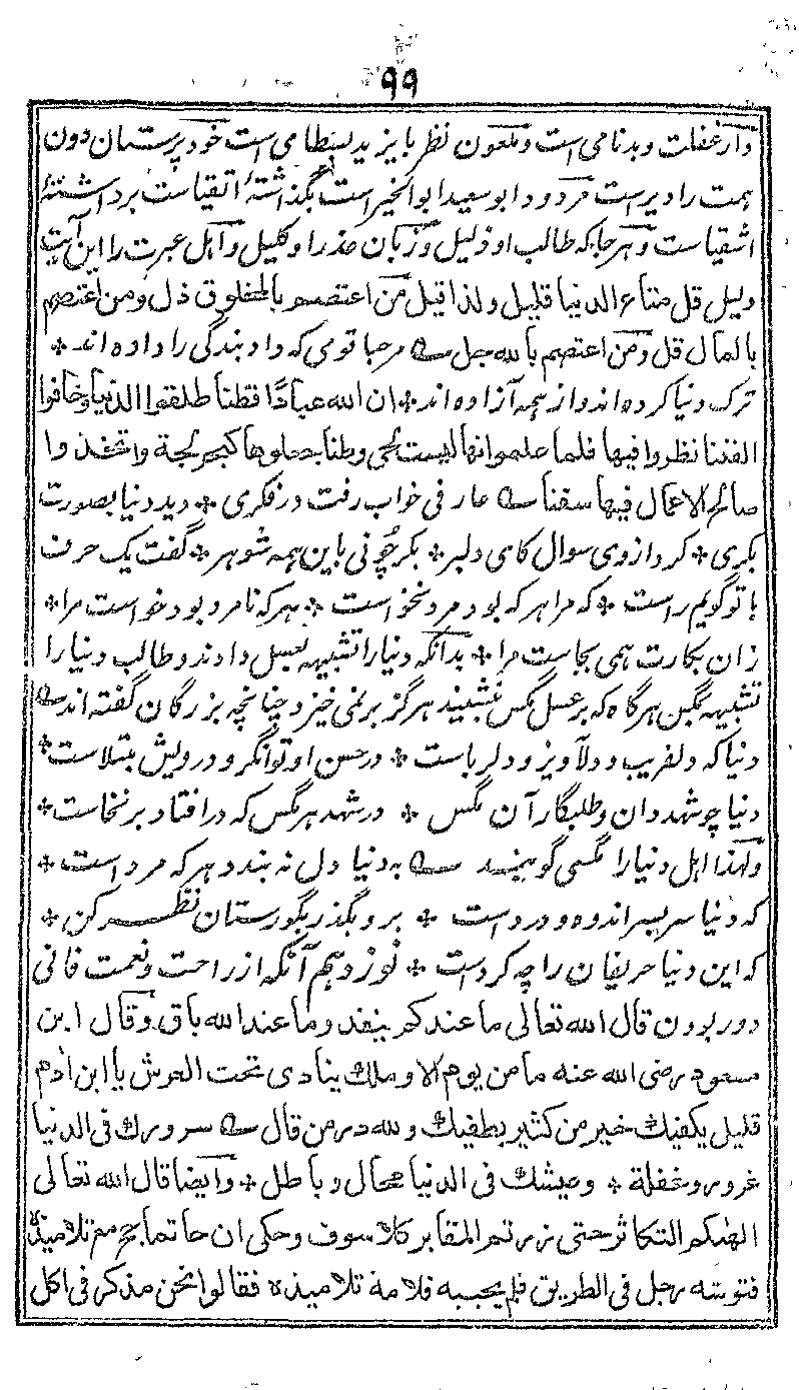 ۹۹
دار غفلت و بدنامی است و ملعون نظر بایزید بسطامی است خود پرستان دون
همت را دیر است مردود ابو سعید ابو الخیر است بگذاشتهٔ اتقیاست برداشتهٔ
اشقیاست و هر جا که طالب او ذلیل و زبان عذر او کلیل و اهل عبرت را این آیت
دلیل قل متاع الدنیا قلیل ولذا قیل من اعتصم بالمخلوق ذل ومن اعتصم
بالمال قل ومن اعتصم بالله جل ؎ مرحبا قومی که داد بندگی را داده اند ٭
ترک دنیا کرده اند و از همه آزاده اند ٭ ان الله عبادًا فطنا طلقوا الدنیا وخافوا
الفتنا نظروا فیها فلما علموا انها لیست لحی وطنا جعلوها کبحر لجة واتخذوا
صالح الاعمال فیها سفنا ؎ عارفی خواب رفت در فکری ٭ دید دنیا بصورت
بکری ٭ کرد از وی سوال کای دلبر ٭ بکر چونی باین همه شوهر ٭ گفت یک حرف
با تو گویم راست ٭ که مرا هر که بود مرد نخواست ٭ هر که نامرد بود خواست مرا ٭
زان بکارت همی بجاست مرا ٭ بدانکه دنیا را تشبیه بعسل دادند و طالب دنیا را
تشبیه بمگس هر گاه که بر عسل مگس نشیند هرگز بر نمی خیزد چنانچه بزرگان گفته اند ؎
دنیا که دلفریب و دلاویز و دلرباست ٭ در حسن او توانگر و درویش مبتلاست ٭
دنیا چو شهد دان و طلبگار آن مگس ٭ در شهد هر مگس که در افتاد بر نخاست ٭
ولهذا اهل دنیا را مگسی گویند ؎ به دنیا دل نه بندد هر که مرد است ٭
که دنیا سر بسر اندوه و درد است ٭ برو بگذر بگورستان نظر کن ٭
که این دنیا حریفان را چه کردست ٭ نوزدهم آنکه از راحت و نعمت فانی
دور بودن قال الله تعالی ما عندکم ینفد وما عند الله باق وقال ابن
مسعود رضی الله عنه ما من یوم الا وملك ینادی تحت العرش یا ابن ادم
قلیل یکفیك خیر من کثیر یطغیك ولله در من قال ؎ سرورك فی الدنیا
غرور وغفلة ٭ وعیشك فی الدنیا محال وباطل ٭ وایضا قال الله تعالی
الهٰکم التکاثر حتی زرتم المقابر کلا سوف وحکی ان حاتما خرج مع تلامیذه
فتوشه رجل فی الطریق فلم یجبه فلامه تلامیذه فقالوا نحن مذکر فی اکل